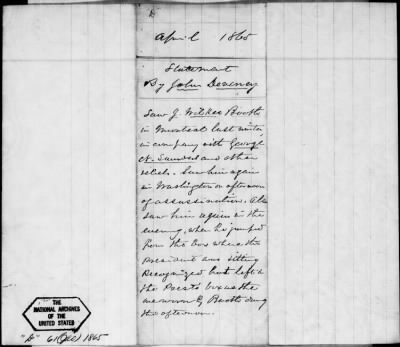 D
April 1865
Statement
By John Deveney
Saw J. Wilkes Booth
in Montreal last winter
in company with George
N. Sanders and other
rebels. Saw him again
in Washington on afternoon
of assassination. Also
saw him again in the
evening, when he jumped
from the box where the
President was sitting
Recognized
the Presdt box as the
one worn by Booth during
the afternoon.
THE
NATIONAL ARCHIVES
OF THE
UNITED STATES
"D" 6 (JAO) 1865